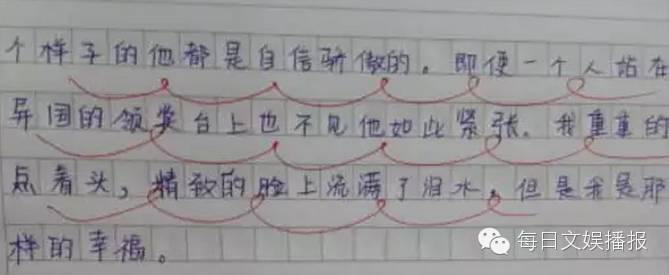 个样子的他都是自信骄傲的。即便一个人站在
异国的领奖台上也不见他如此紧张。我重重的
点着头，精致的脸上流满了泪水，但是我是那
样的幸福。
每日文娱播报